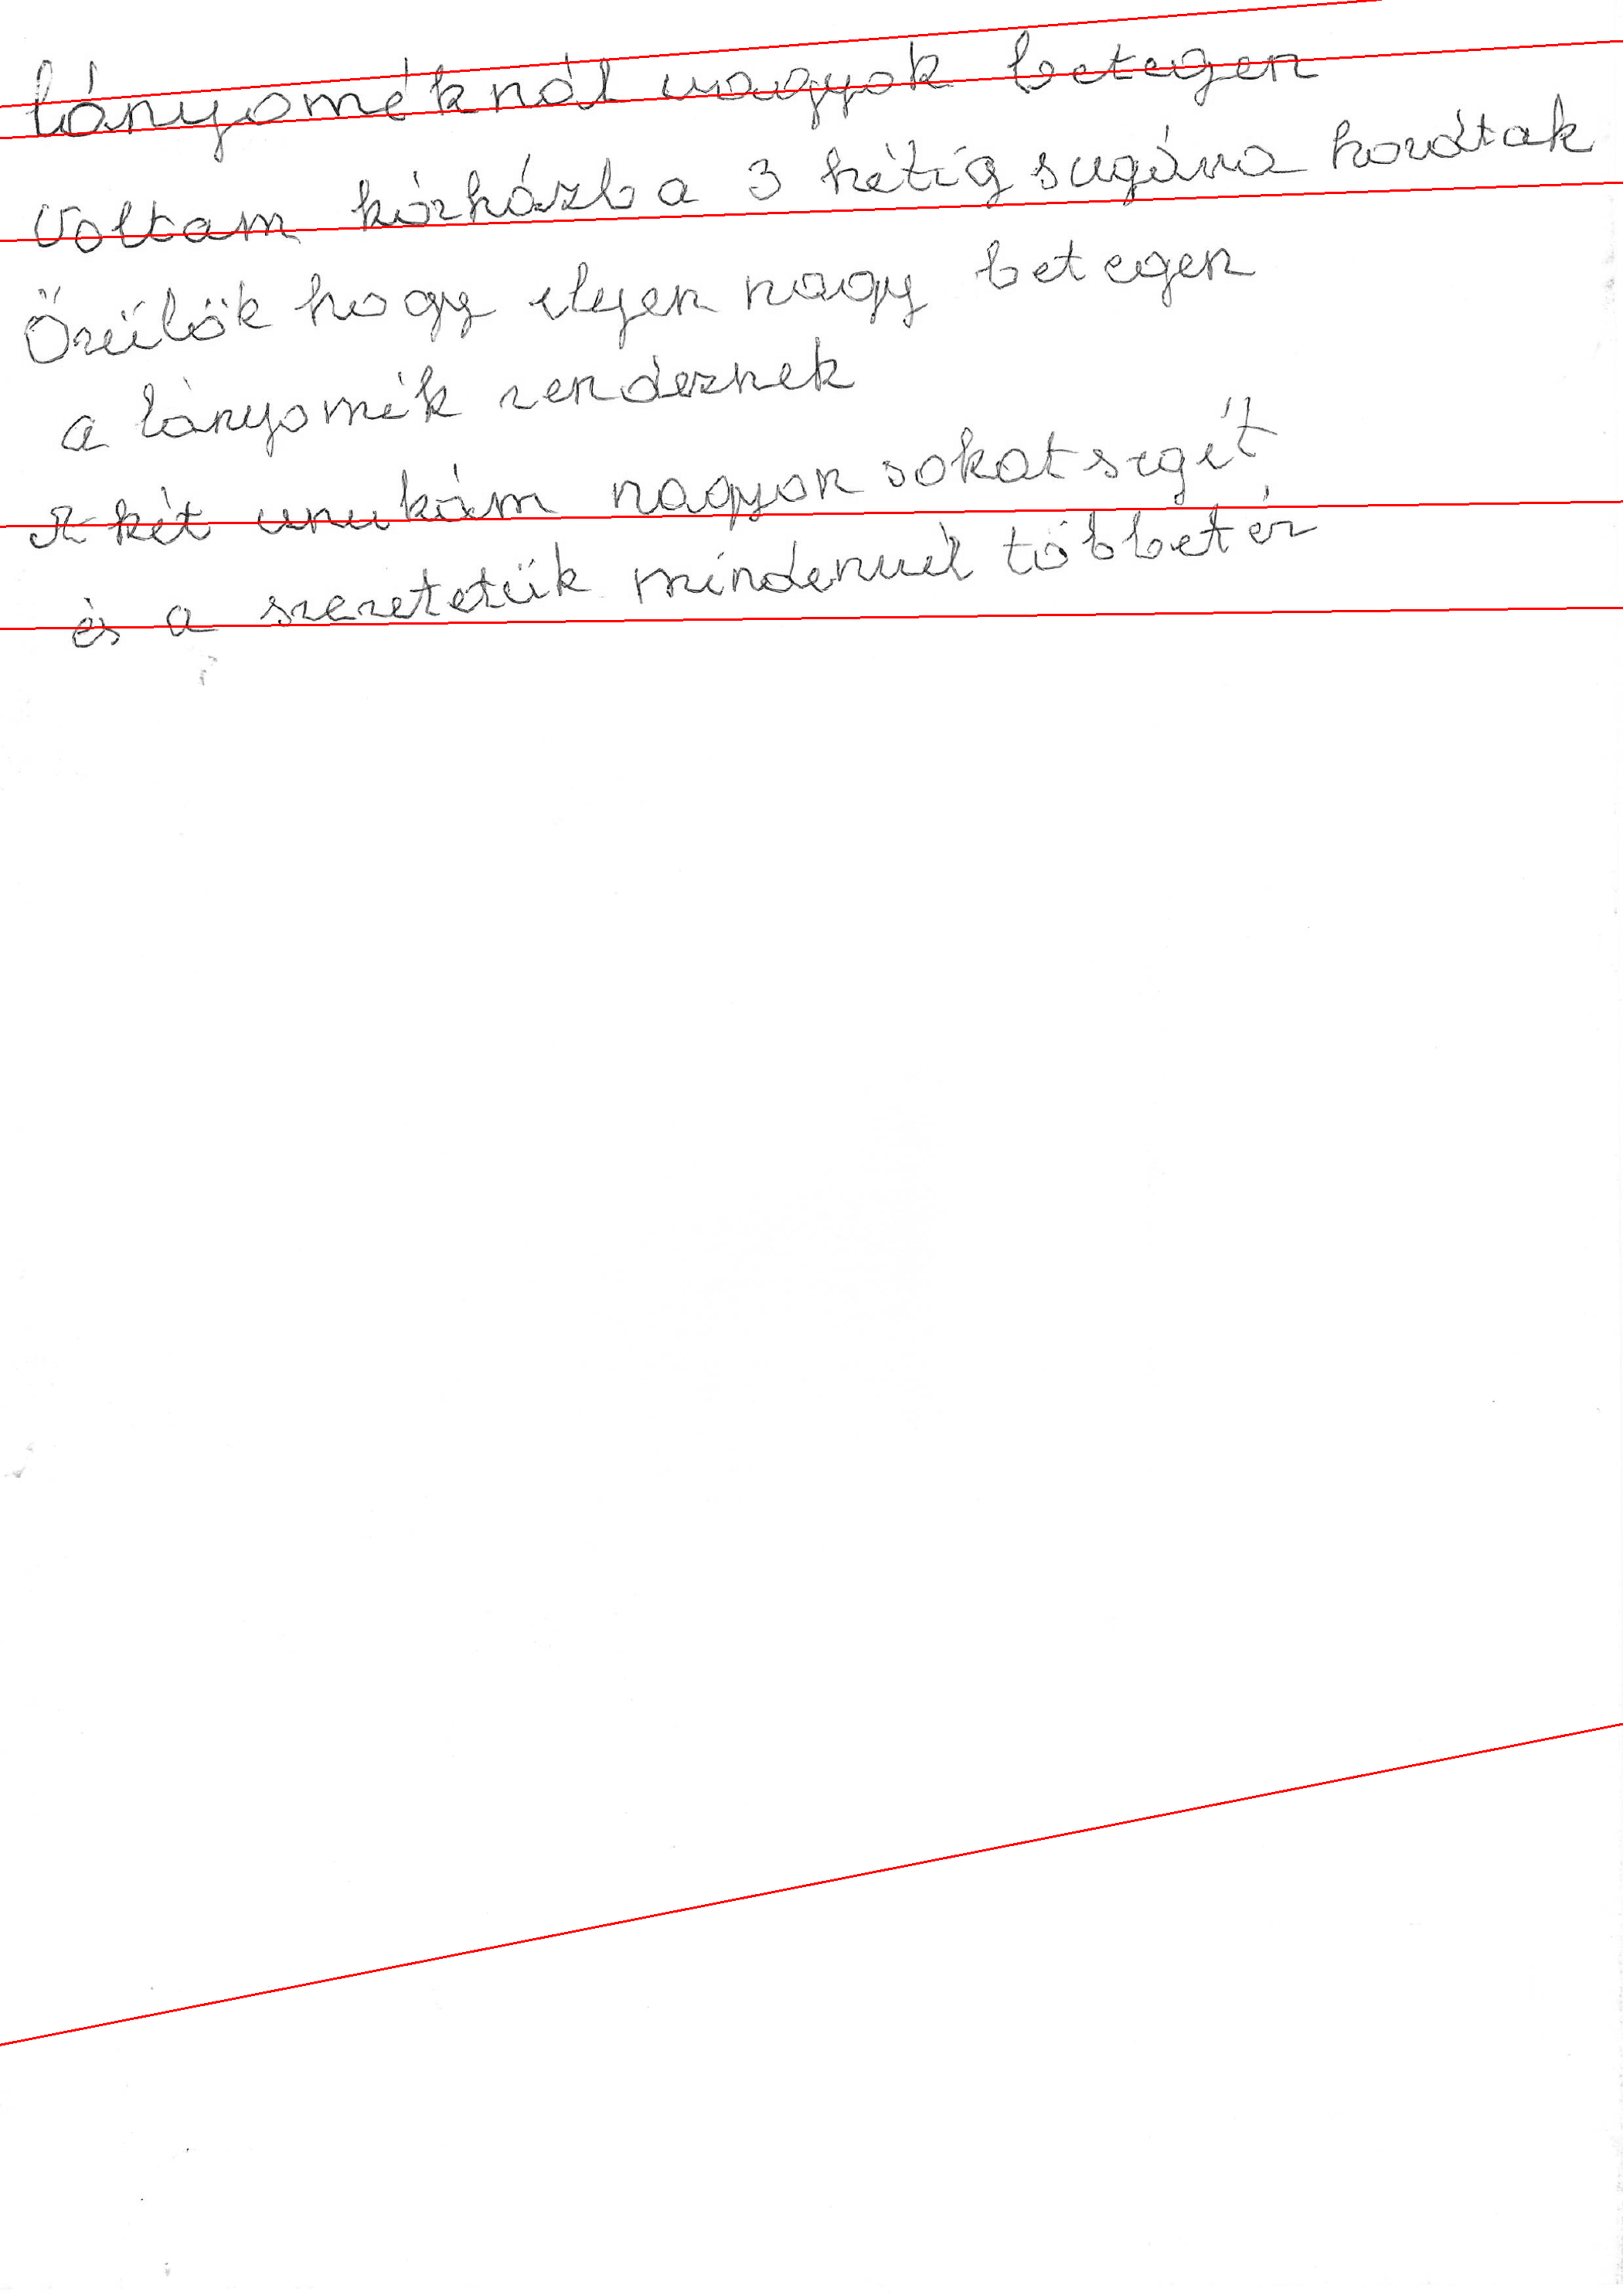 lányoméknál vagyok betegen
Voltam kórházba 3 hétig sugárra hordtak
Örülök hogy ilyen nagy betegen
a lányomék rendeznek
A két unukám nagyon sokat segít
és a szeretetük mindenuél többet ér